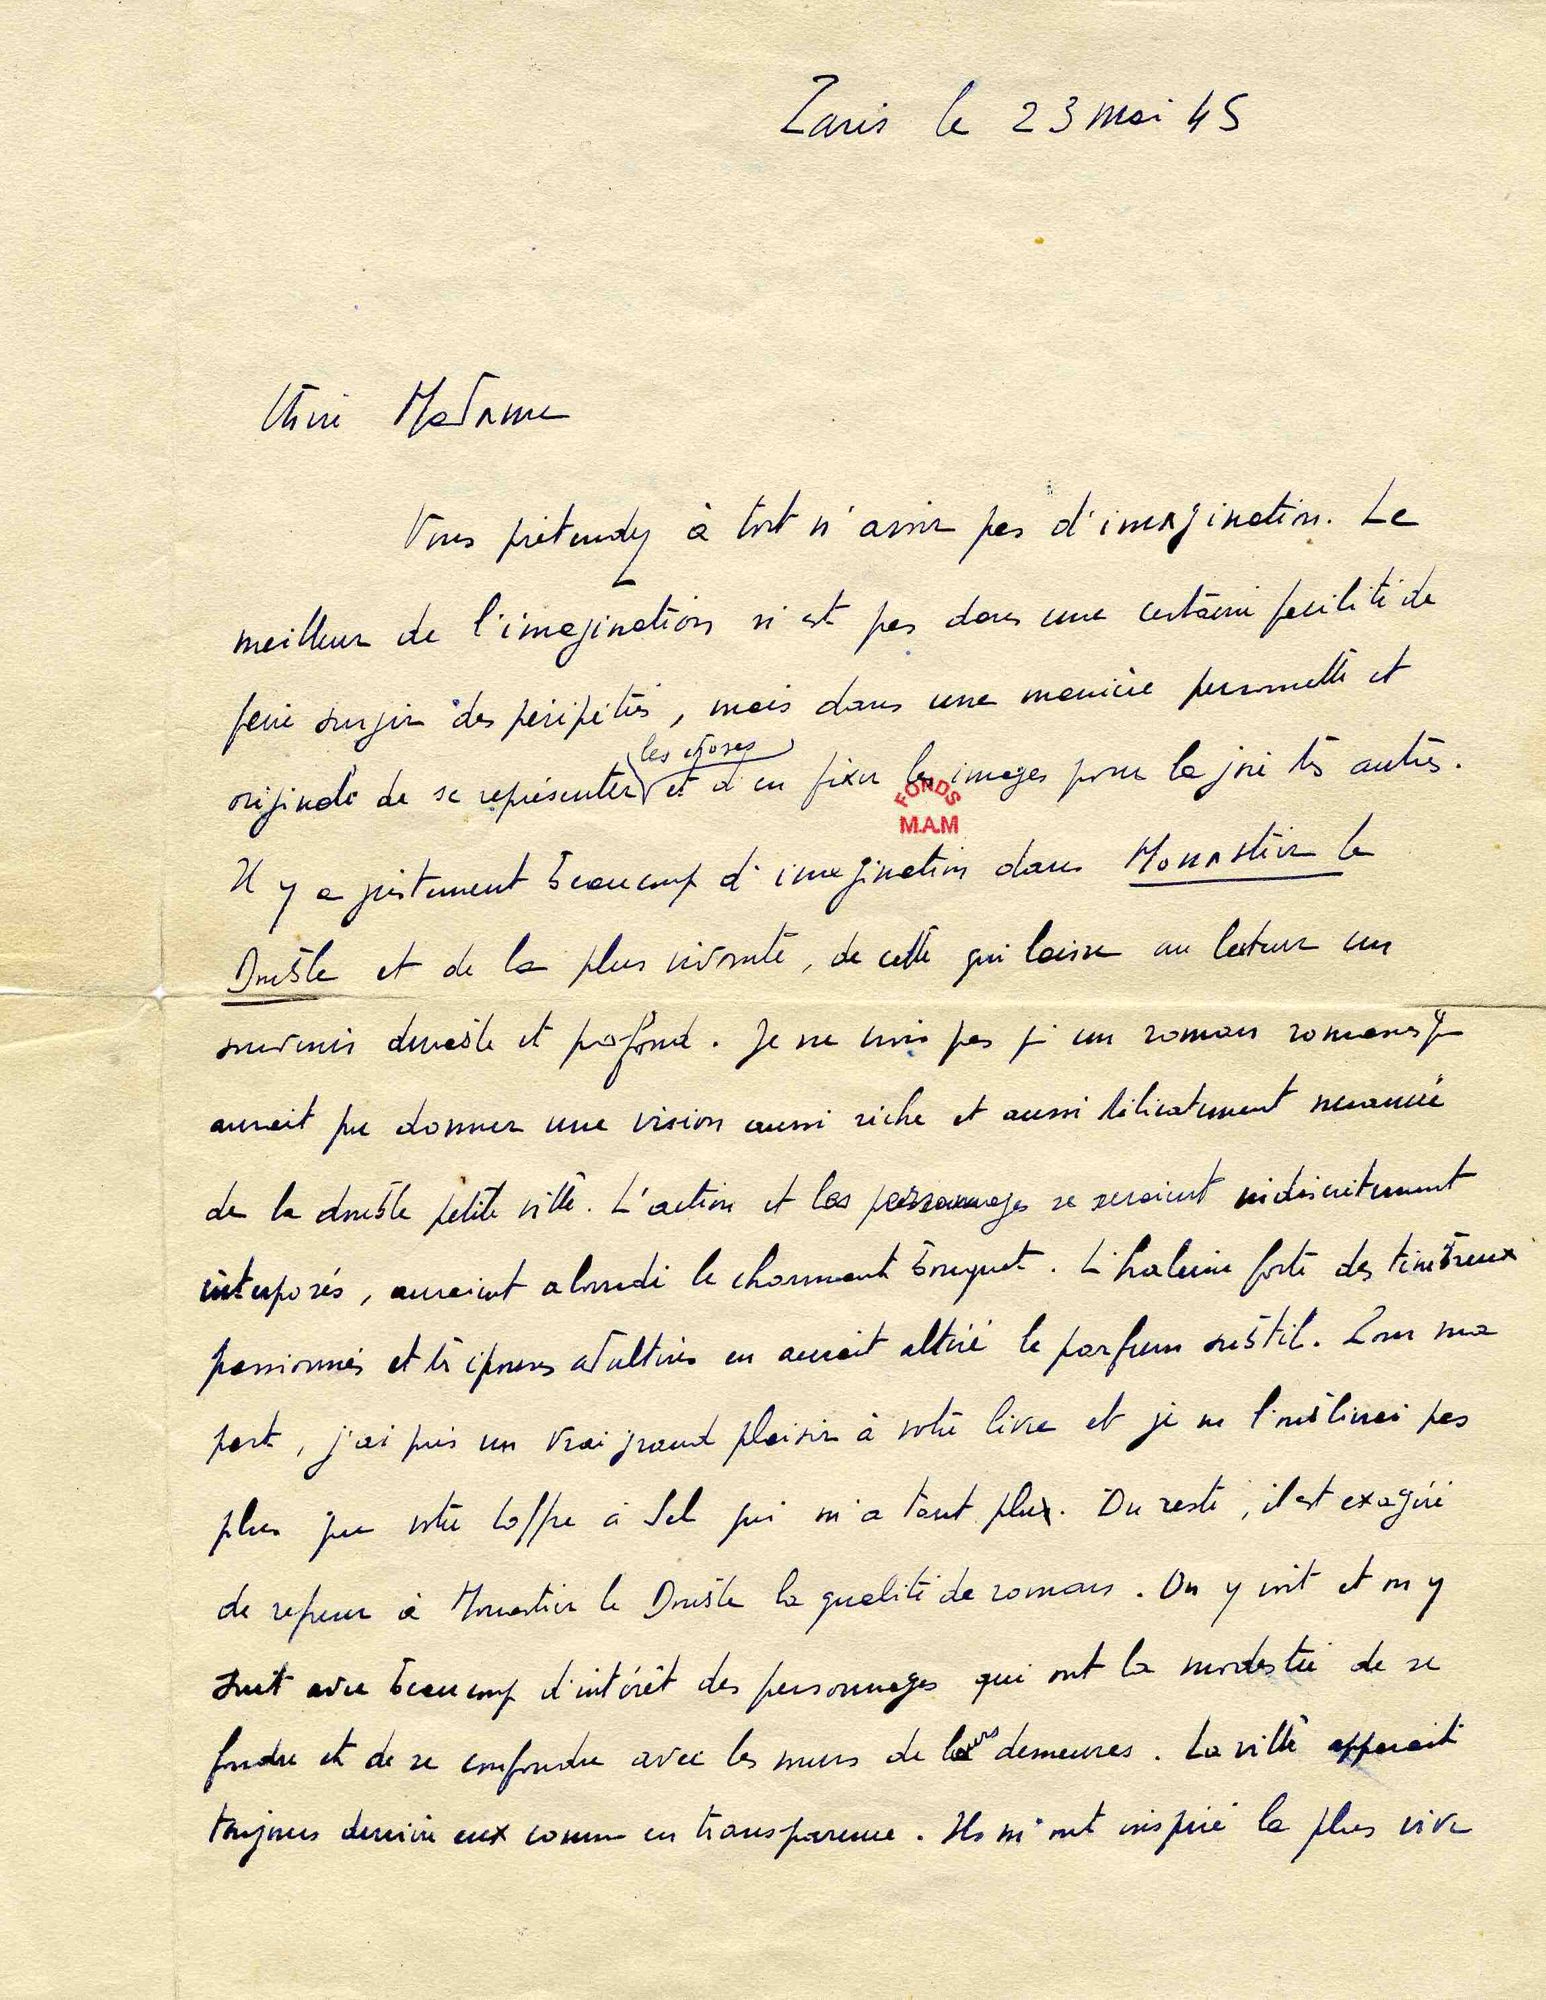 Paris le 23 mai 45
Chère Madame
Vous prétendez à tort n'avoir pas d'imagination. Le
meilleur de l'imagination n'est pas dans une certaine facilité de
faire surgir des péripéties, mais dans une manière personnelle et
les choses
originale de se représenter et d'en fixer les images pour la joie des autres.
FONDS
M.A.M
Il y a justement beaucoup d'imagination dans Monastier le
Double et de la plus vivante, de celle qui laisse au lecteur un
souvenir durable et profond. Je ne crois pas qu'un roman romanesq
aurait pu donner une vision aussi riche et aussi délicatement nuancée
de la double petite ville. L'action et les personnages se seraient indiscrètement
interposés, auraient alourdi le charmant bouquet. L'haleine forte des ténébreux
passionnés et des épouses adultères en aurait altéré le parfum subtil. Pour ma
part, j'ai pris un vrai grand plaisir à votre livre et je ne l'oublierai pas
plus que votre Coffre à Sel qui m'a tant plu. Du reste, il est exagéré
de refuser à Monastier le Double la qualité de roman. On y voit et on y
suit avec beaucoup d'intérêt des personnages qui ont la modestie de se
fondre et de se confondre avec les murs de leurs demeures. La ville apparait
toujours derrière eux comme en transparence. Ils m'ont inspiré la plus vive